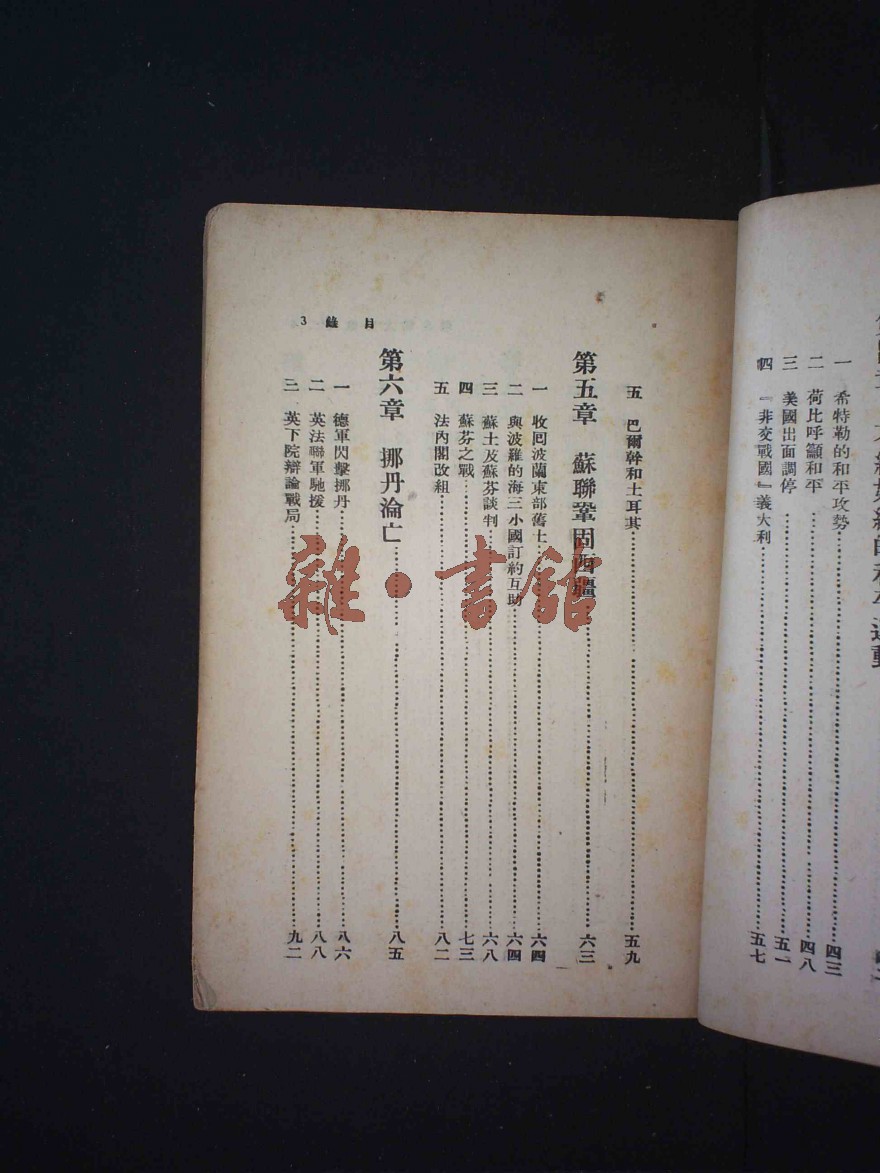 一 希特勒的和平攻勢……四三
二 荷比呼籲和平……四八
三 美國出面調停……五一
四 『非交戰國』義大利……五七
目錄 3
五 巴爾幹和土耳其……五九
第五章 蘇聯鞏固西疆……六三
一 收囘波蘭東部舊土……六四
二 與波羅的海三小國訂約互助……六四
三 蘇土及蘇芬談判……六八
四 蘇芬之戰……七三
五 法內閣改組……八二
第六章 挪丹淪亡……八五
一 德軍閃擊挪丹……八六
二 英法聯軍馳援……八八
三 英下院辯論戰局……九二
雜·書館